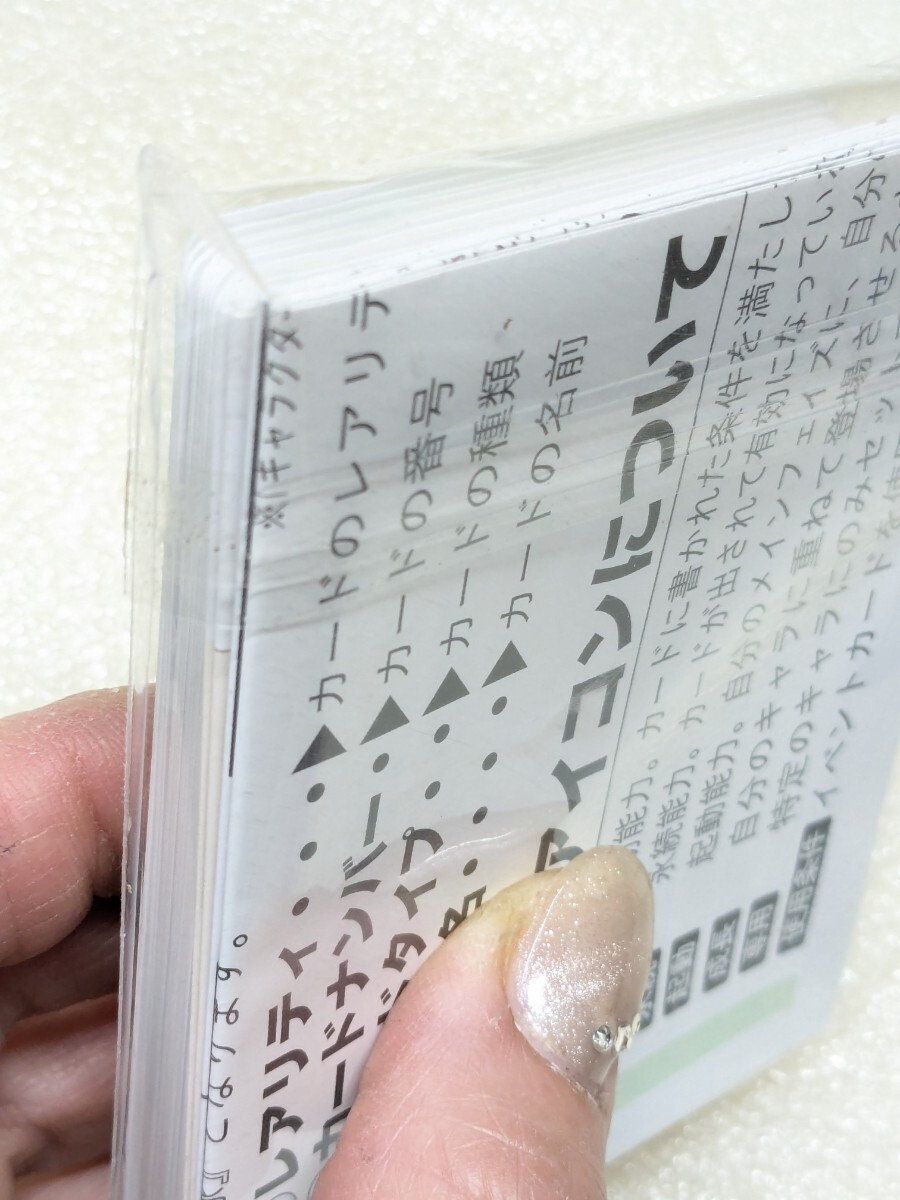 となります。
※1キャラクター
レアリティ・・・▶カードのレアリテ
カードナンバー・▶カードの番号
ドタイプ・・▶カードの種類
名・・・▶カードの名前
アイコンについて
能力。カードに書かれた条件を満たし
永続能力。カードが出されて有効になってい
起動 起動能力。自分のメインフェイズに、自分
自分のキャラに重ねて登場させる
専用 特定のキャラにのみセット
使用条件 イベントカードを使用